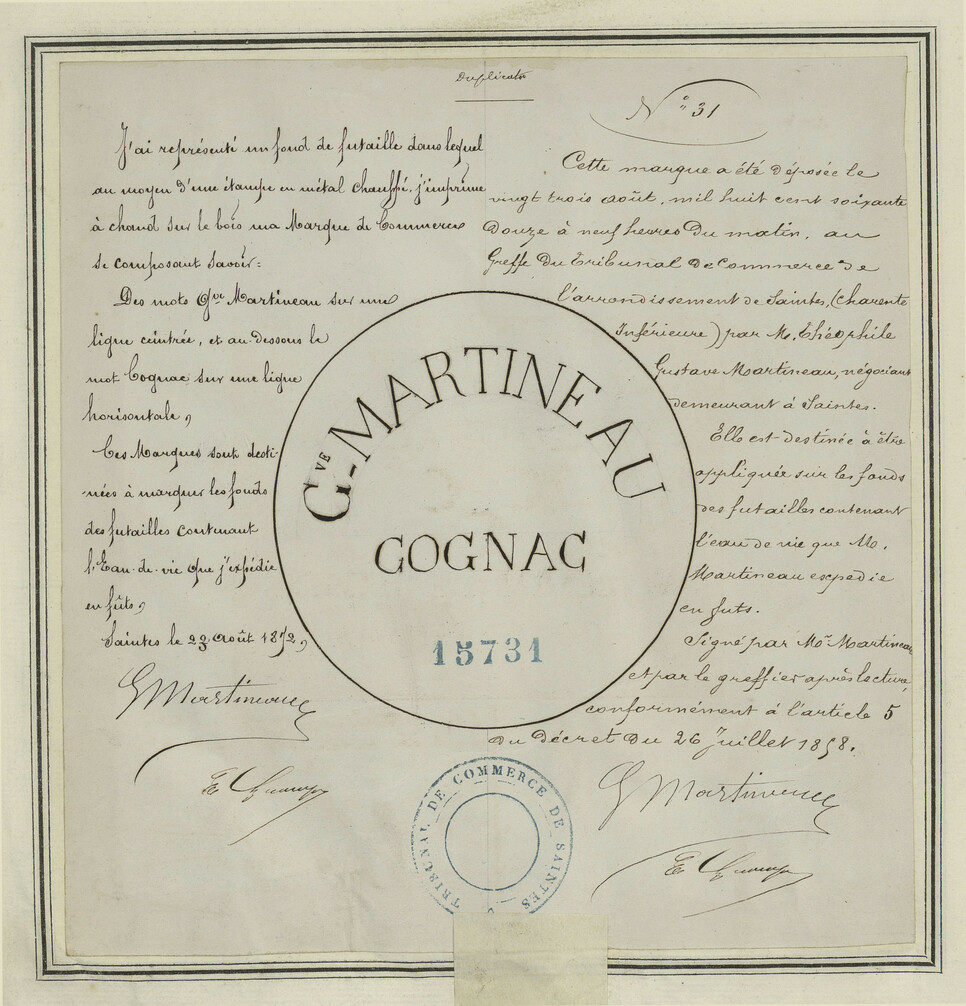 Duplicata
J'ai représenté un fond de futaille dans lequel
au moyen d'une étampe en métal chauffé, j'imprime
à chaud sur le bois ma Marque de Commerce
se composant savoir:
Des mots Gve Martineau sur une
ligne ceintrée, et au-dessous le
mot Cognac sur une ligne
horisontale,
Ces Marques sont desti-
nées à marquer les fonds
des futailles contenant
l'Eau-de-vie que j'expédie
en fûts,
Saintes le 23 Août 1872,
G Martineau
N° 31
Cette marque a été déposée le
vingt trois août, mil huit cent soixante
douze à neuf heures du matin, au
Greffe du Tribunal de Commerce de
l'arrondissement de Saintes, (Charente
Inférieure) par M. Théophile
Gustave Martineau, négociant
demeurant à Saintes.
Elle est destinée à être
appliquée sur les fonds
des futailles contenant
l'eau de vie que M.
Martineau expedie
en futs.
Signé par Mr Martineau
et par le greffier après lecture,
conformément à l'article 5
du décret du 26 Juillet 1858.
G Martineau
Gve-MARTINEAU
COGNAC
15731
TRIBUNAL DE COMMERCE DE SAINTES